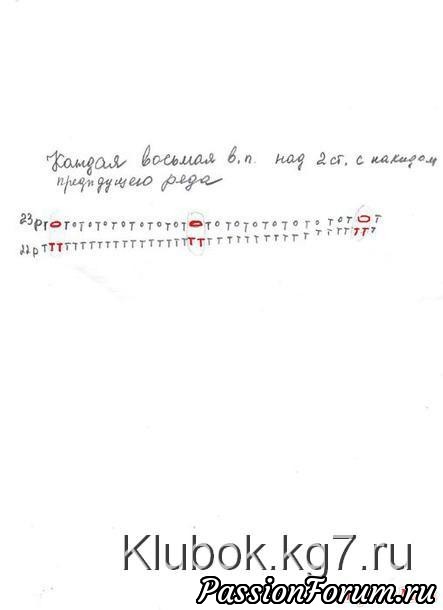 Каждая восьмая в.п. над 2 ст. с накидом
предыдущего ряда
23р Т о Т о Т о Т о Т о Т о Т о Т о Т о Т о Т о Т о Т о Т о Т о Т о Т о Т о Т
22р Т Т Т Т Т Т Т Т Т Т Т Т Т Т Т Т Т Т Т Т Т Т Т Т Т Т Т Т Т Т Т Т Т Т Т Т Т Т Т
Klubok.kg7.ru
PassionForum.ru